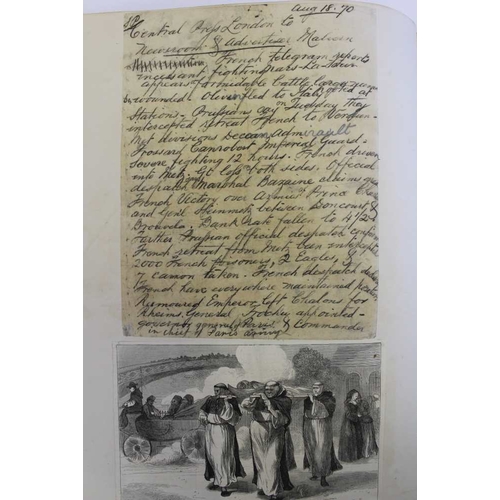 Aug 18. 70
Central Press London to
Newsroom & Advertiser Malvern
French telegram reports
incessant fighting Mars-La-Tour
appears formidable Cattle Cargo
wounded. Olivier fled to Italy
Stations - Prussians say on Tuesday they
intercepted retreat French to Verdun -
Met divisions Decaen Admirault
Frossary Canrobert Imperial Guard -
severe fighting 12 hours. French driven
into Metz. Gt loss both sides. Official
despatch Marshal Bazaine claims
French Victory over Armies Prince
and Genl Steinmetz between Doncourt &
Bank Rate fallen to 4 1/2
Further Prussian official despatch
French retreat from Metz been
2000 French prisoners, 2 Eagles, &
7 cannon taken. French despatch
French have everywhere maintained
Rumoured Emperor left Chalons for
Rheims. General Trochu appointed
governor general Paris & Commander
in chief of Paris army